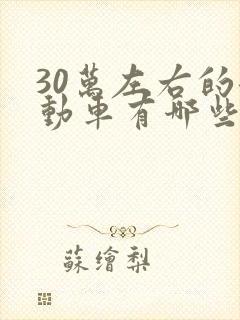 30萬左右的
動車有哪些
蘇繪梨